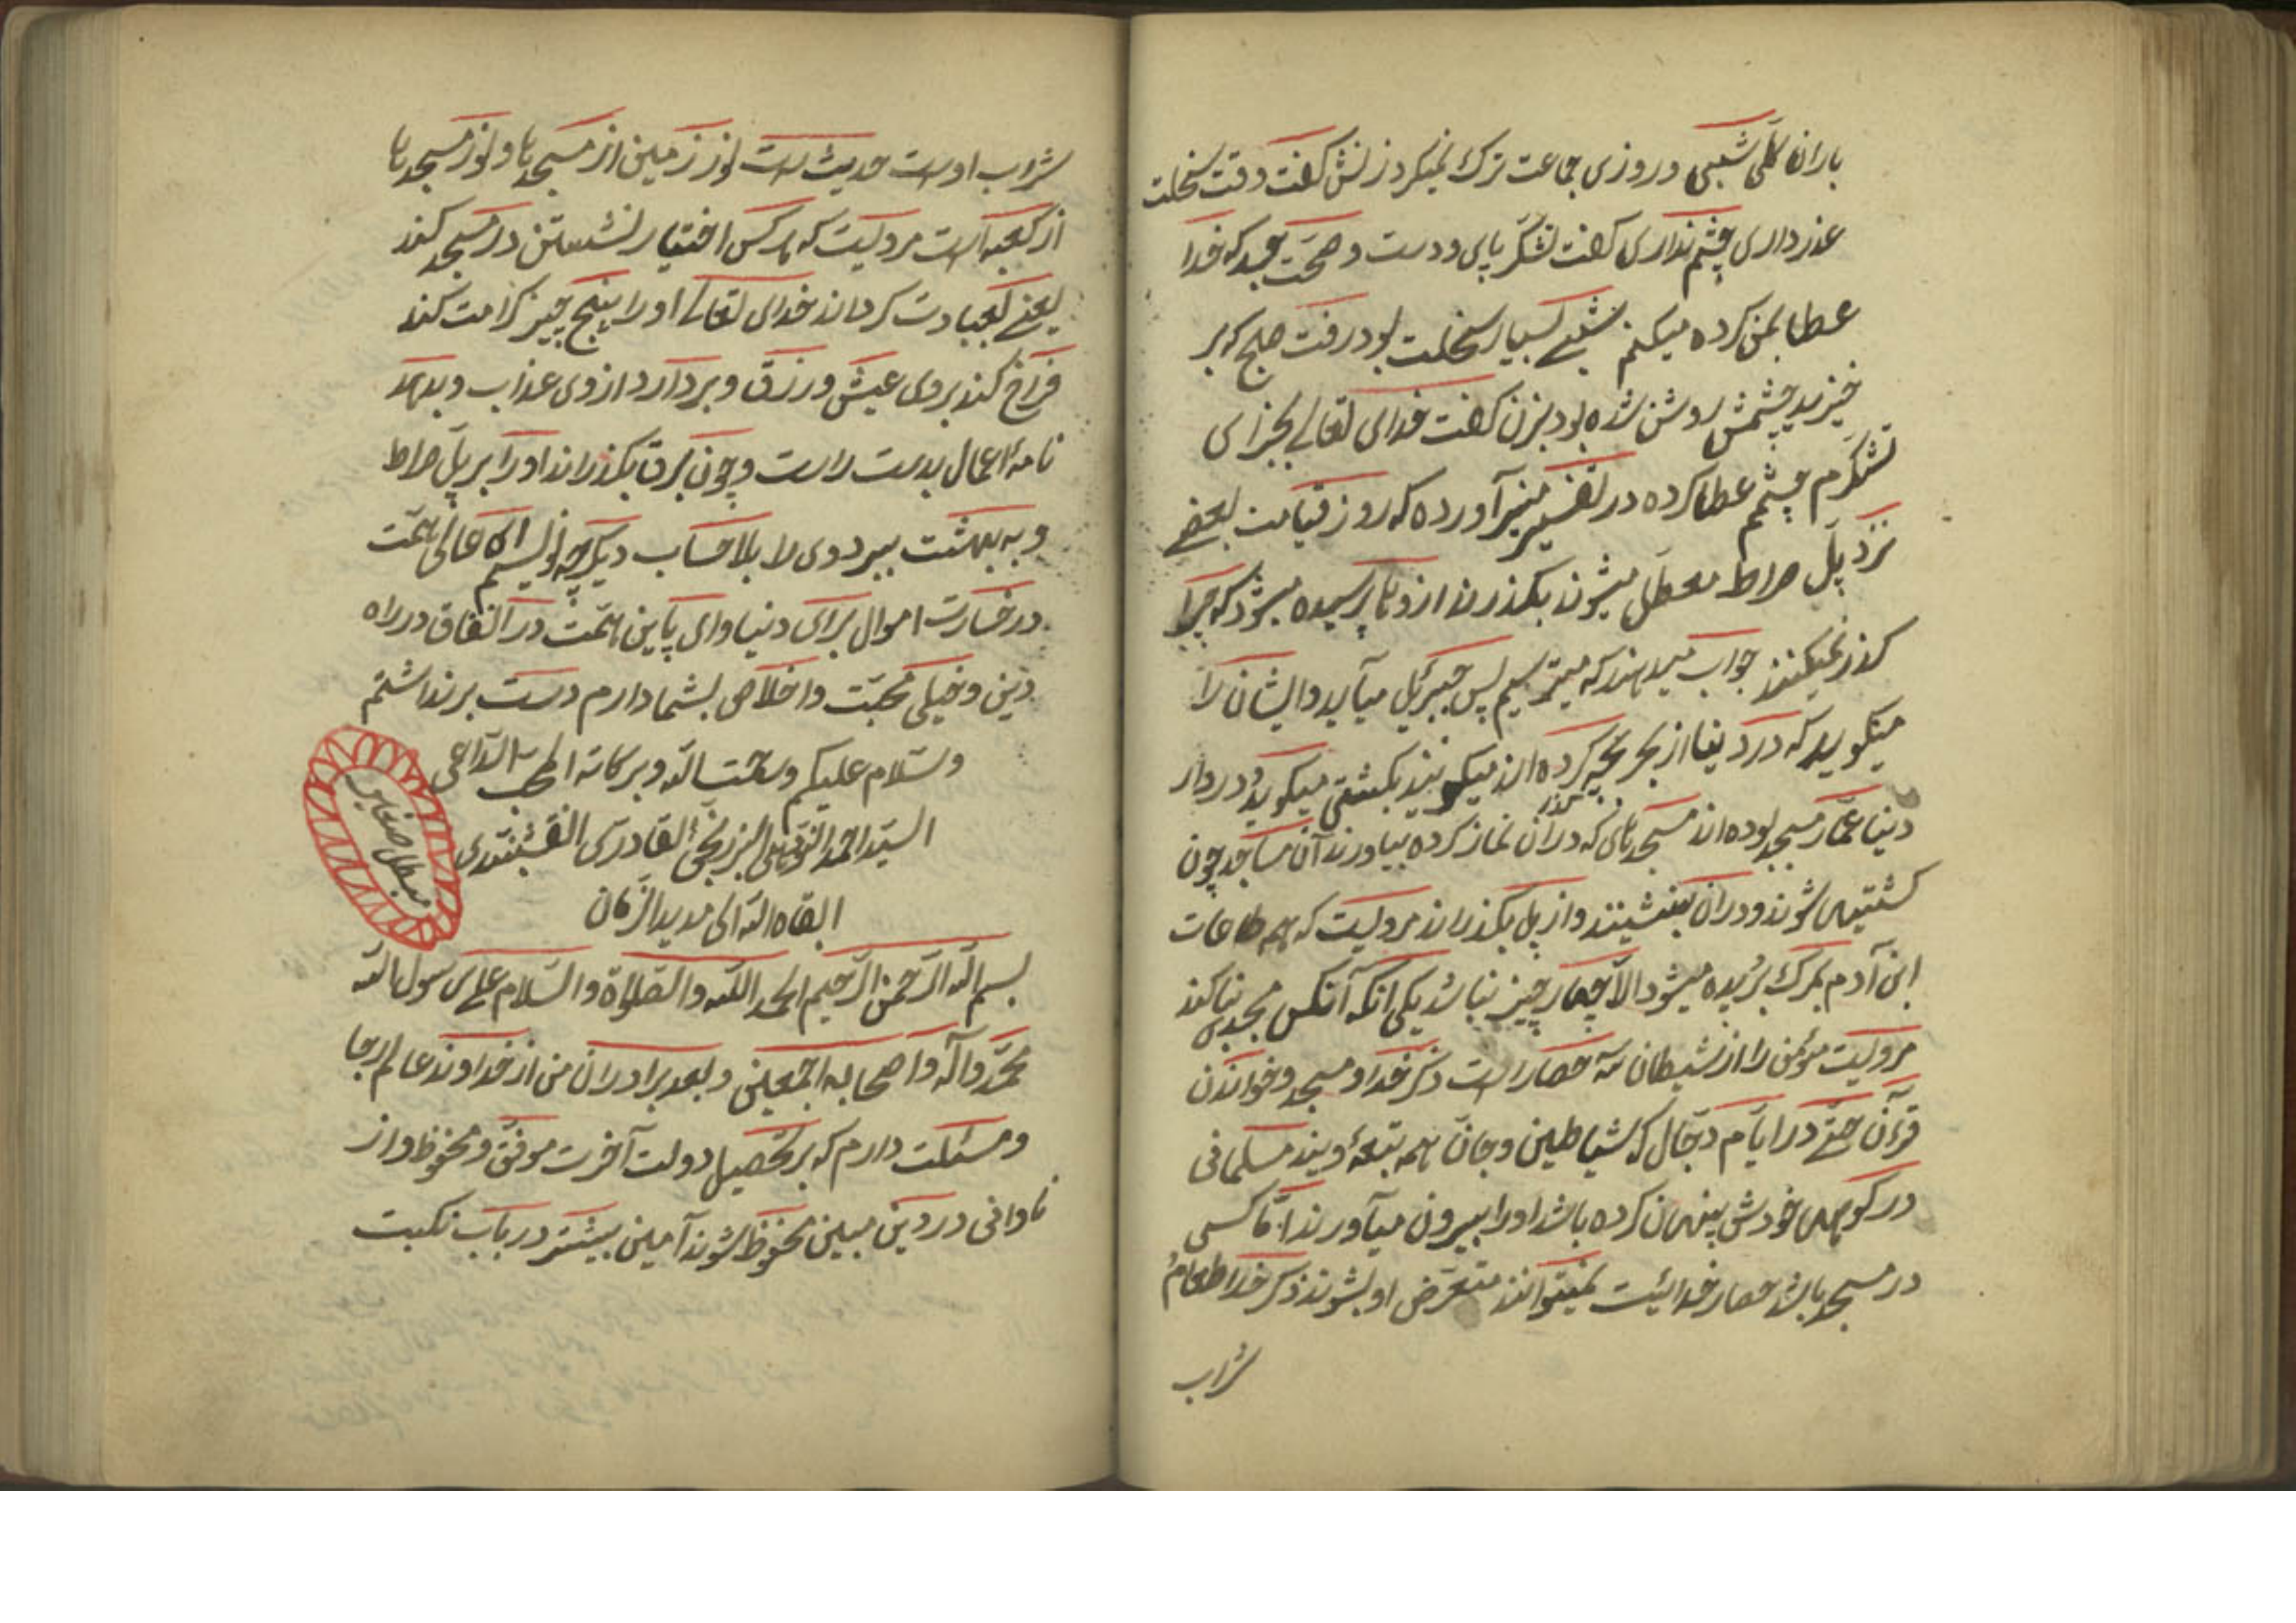 باران گلی شبی و روزی جماعت ترک نمیکرد زنش گفت وقت سخلت
عذر داری چشم نداری گفت تشکر پای و دست و صحت بعید که خدا
عطا بمن کرده میکنم شبی بسیار سخلت بود رفت صبح که بر
خیزید چشمش روشن شده بود بزن گفت خدای تعالی بجزای
تشکرم چشمم عطا کرده در تفسیر منیر آورده که روز قیامت بعضی
نزد پل صراط معطل میشوند بگذرند از وها پرسیده میشود که چرا
گذر نمیکنند جواب میدهند که میترسیم پس جبرئیل میآید و ایشان را
میگوید که در دنیا از بحر بچه کرده اند میگویند بکشتی میگوید در دار
دنیا عمار مسجد بوده اند مسجدهای که در آن نماز کرده بیاورند آن مساجد چون
کشتیهی شوند و در آن بنشینند و از پل بگذرانند مرویست که همه طاعات
ابن آدم بمرگ بریده میشود الا چهار چیز نباشد یکی آنکه آنکس مجدی بنا کند
مرویست مؤمن را از شیطان سه حصار است ذکر خدا و مسجد و خواندن
قرءآن حتی در ایام دجال که شیاطین و جان همه بتبعهٔ ویند مسلمانی
در کوههای خودش پنهان کرده باشد او را بیرون میآورند اما کسی
در مسجد باشد حصار خدائیست نمیتوانند متعرض او بشوند ذکر خدا طعام
شراب
شراب اوست حدیث است نور زمین از مسجدها و نور مسجدها
از کعبه است مرویست که هر کس اختیار نشستن در مسجد کند
یعنی بعبادت کردن خدای تعالی او را پنج چیز کرامت کند
فراخ کند بروی عیش و رزق و بردارد از وی عذاب و بدهد
نامهٔ اعمال بدست راست و چون برق بگذراند او را بر پل صراط
و به بهشت ببرد وی را بلا حساب دیگر چه نویسم ای عالی همت
در خسارت اموال برای دنیا وای پایین همت در انفاق در راه
دین و خیلی محبت و اخلاص بشما دارم دست برنداشتم
وسلام علیکم ورحمت الله وبرکاته الداعی
السید احمد البرزنجی القادری النقشبندی
ابقاه الله الی مدید الزمان
بسم الله الرحمن الرحیم الحمد لله والصلاة والسلام علی رسول الله
محمد وآله واصحابه اجمعین وبعد برادران من از خداوند عالم رجا
و مسئلت دارم که بر تحصیل دولت آخرت موفق و محفوظ و از
نادانی در دین مبین محفوظ شوند آمین بیشتر در باب نکبت